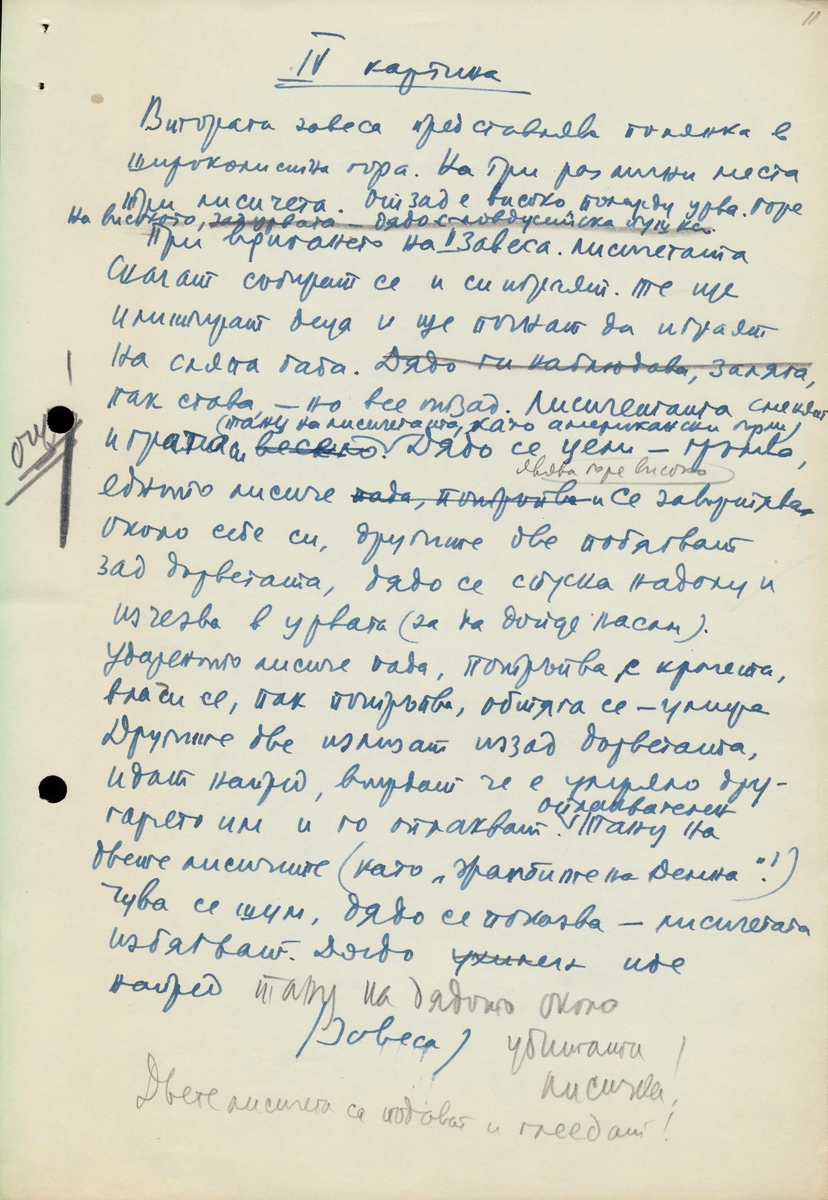 11
IV картина
Втората завеса представлява полянка в
широколистна гора. На три различни места
три лисичета. Отзад е високо понарду урва. Горе
на високото, зад урвата – дядо с
При вдигането на II завеса. лисичетата
Скачат събират се и си играят. Те ще
имитират деца и ще почнат да играят
на сляпа баба. Дядо ги наблюдава, заляга,
пак става – но все отзад. Лисичетата сменят
(танц на лисичетата, като американски
играта си весело. Дядо се цели – гръмва,
явява горе високо
едното лисиче пада, потръпва и се завъртява
около себе си, другите две побягват
зад дърветата, дядо се спуска надолу и
изчезва в урвата (за да дойде насам).
Удареното лисиче пада, потръпва с крачета,
влачи се, пак потръпва, обтяга се – умира
Другите две излизат иззад дърветата,
идат напред, виждат че е умряло дру-
гарчето им и го оплакват. оплаквателен Танц на
двете лисичките (като „ на Делина“!)
Чува се шум, дядо се показва – лисичетата
избягват. Дядо ухилен иде
напред танц на дядото около
(Завеса) убитата
лисичка!
Двете лисичета се подават и гледат!
очи